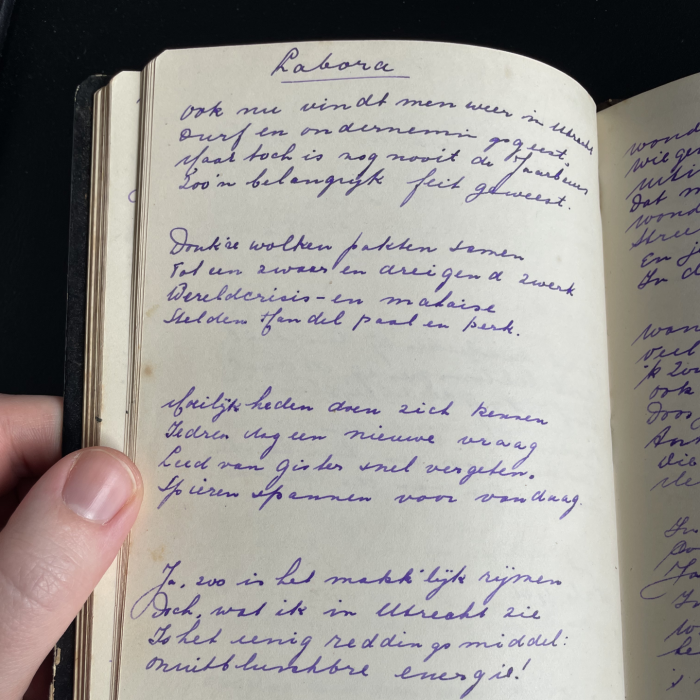 Labora
Ook nu vindt men weer in Utrecht
Durf en ondernemingsgeest.
Maar toch is nog nooit de Jaarbeurs
Zoo'n belangrijk feit geweest.
Donk're wolken pakten samen
Tot een zwaar en dreigend zwerk
Wereldcrisis- en malaise
Stelden Handel paal en perk.
Moeilijkheden doen zich kennen
Iedren dag een nieuwe vraag
Leed van gister snel vergeten.
Spieren spannen voor vandaag.
Ja, zoo is het makk'lijk rijmen
Doch, wat ik in Utrecht zie
Is het eenig reddingsmiddel:
Onuitbluschbre energie!
wond
wie ge
Dat
wond
En j
In d
wan
veel
ook
Door
Die